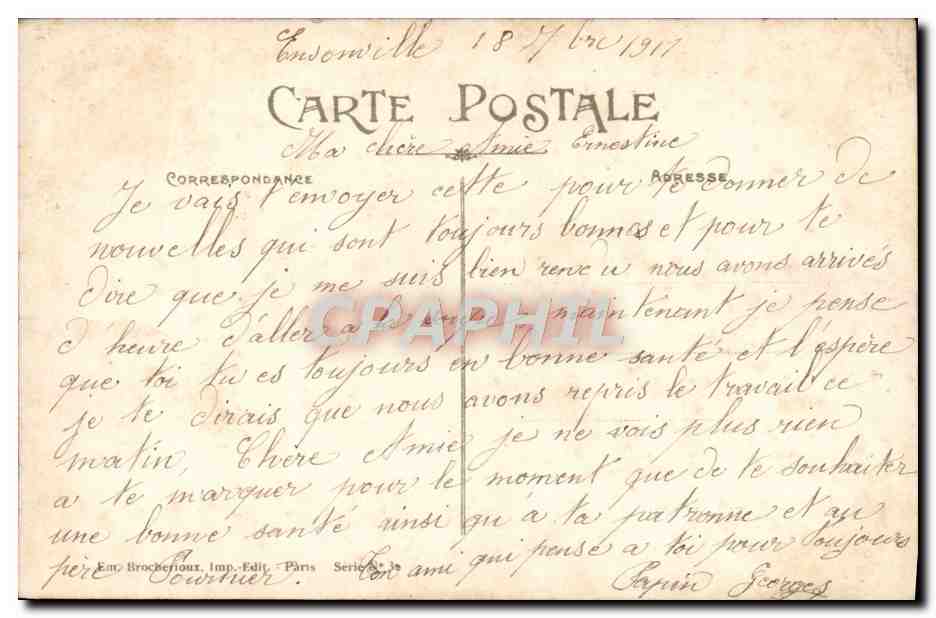 Ensonville 18 7bre 1917
CARTE POSTALE
Ma chère Amie Ernestine
CORRESPONDANCE ADRESSE
Je vais t'envoyer cette pour te donner de
nouvelles qui sont toujours bonnes et pour te
dire que je me suis bien rendu nous avons arrivés
d'heure d'aller a la maintenant je pense
CPAPHIL
que toi tu es toujours en bonne santé et l'éspère
je te dirais que nous avons repris le travail ce
matin, Chère Amie je ne vois plus rien
a te marquer pour le moment que de te souhaiter
une bonne santé ainsi qu'à ta patronne et au
père Fournier. Ton ami qui pense a toi pour toujours
Em. Brocherioux, Imp.-Edit. - Paris Serie N° 32
Papin Georges